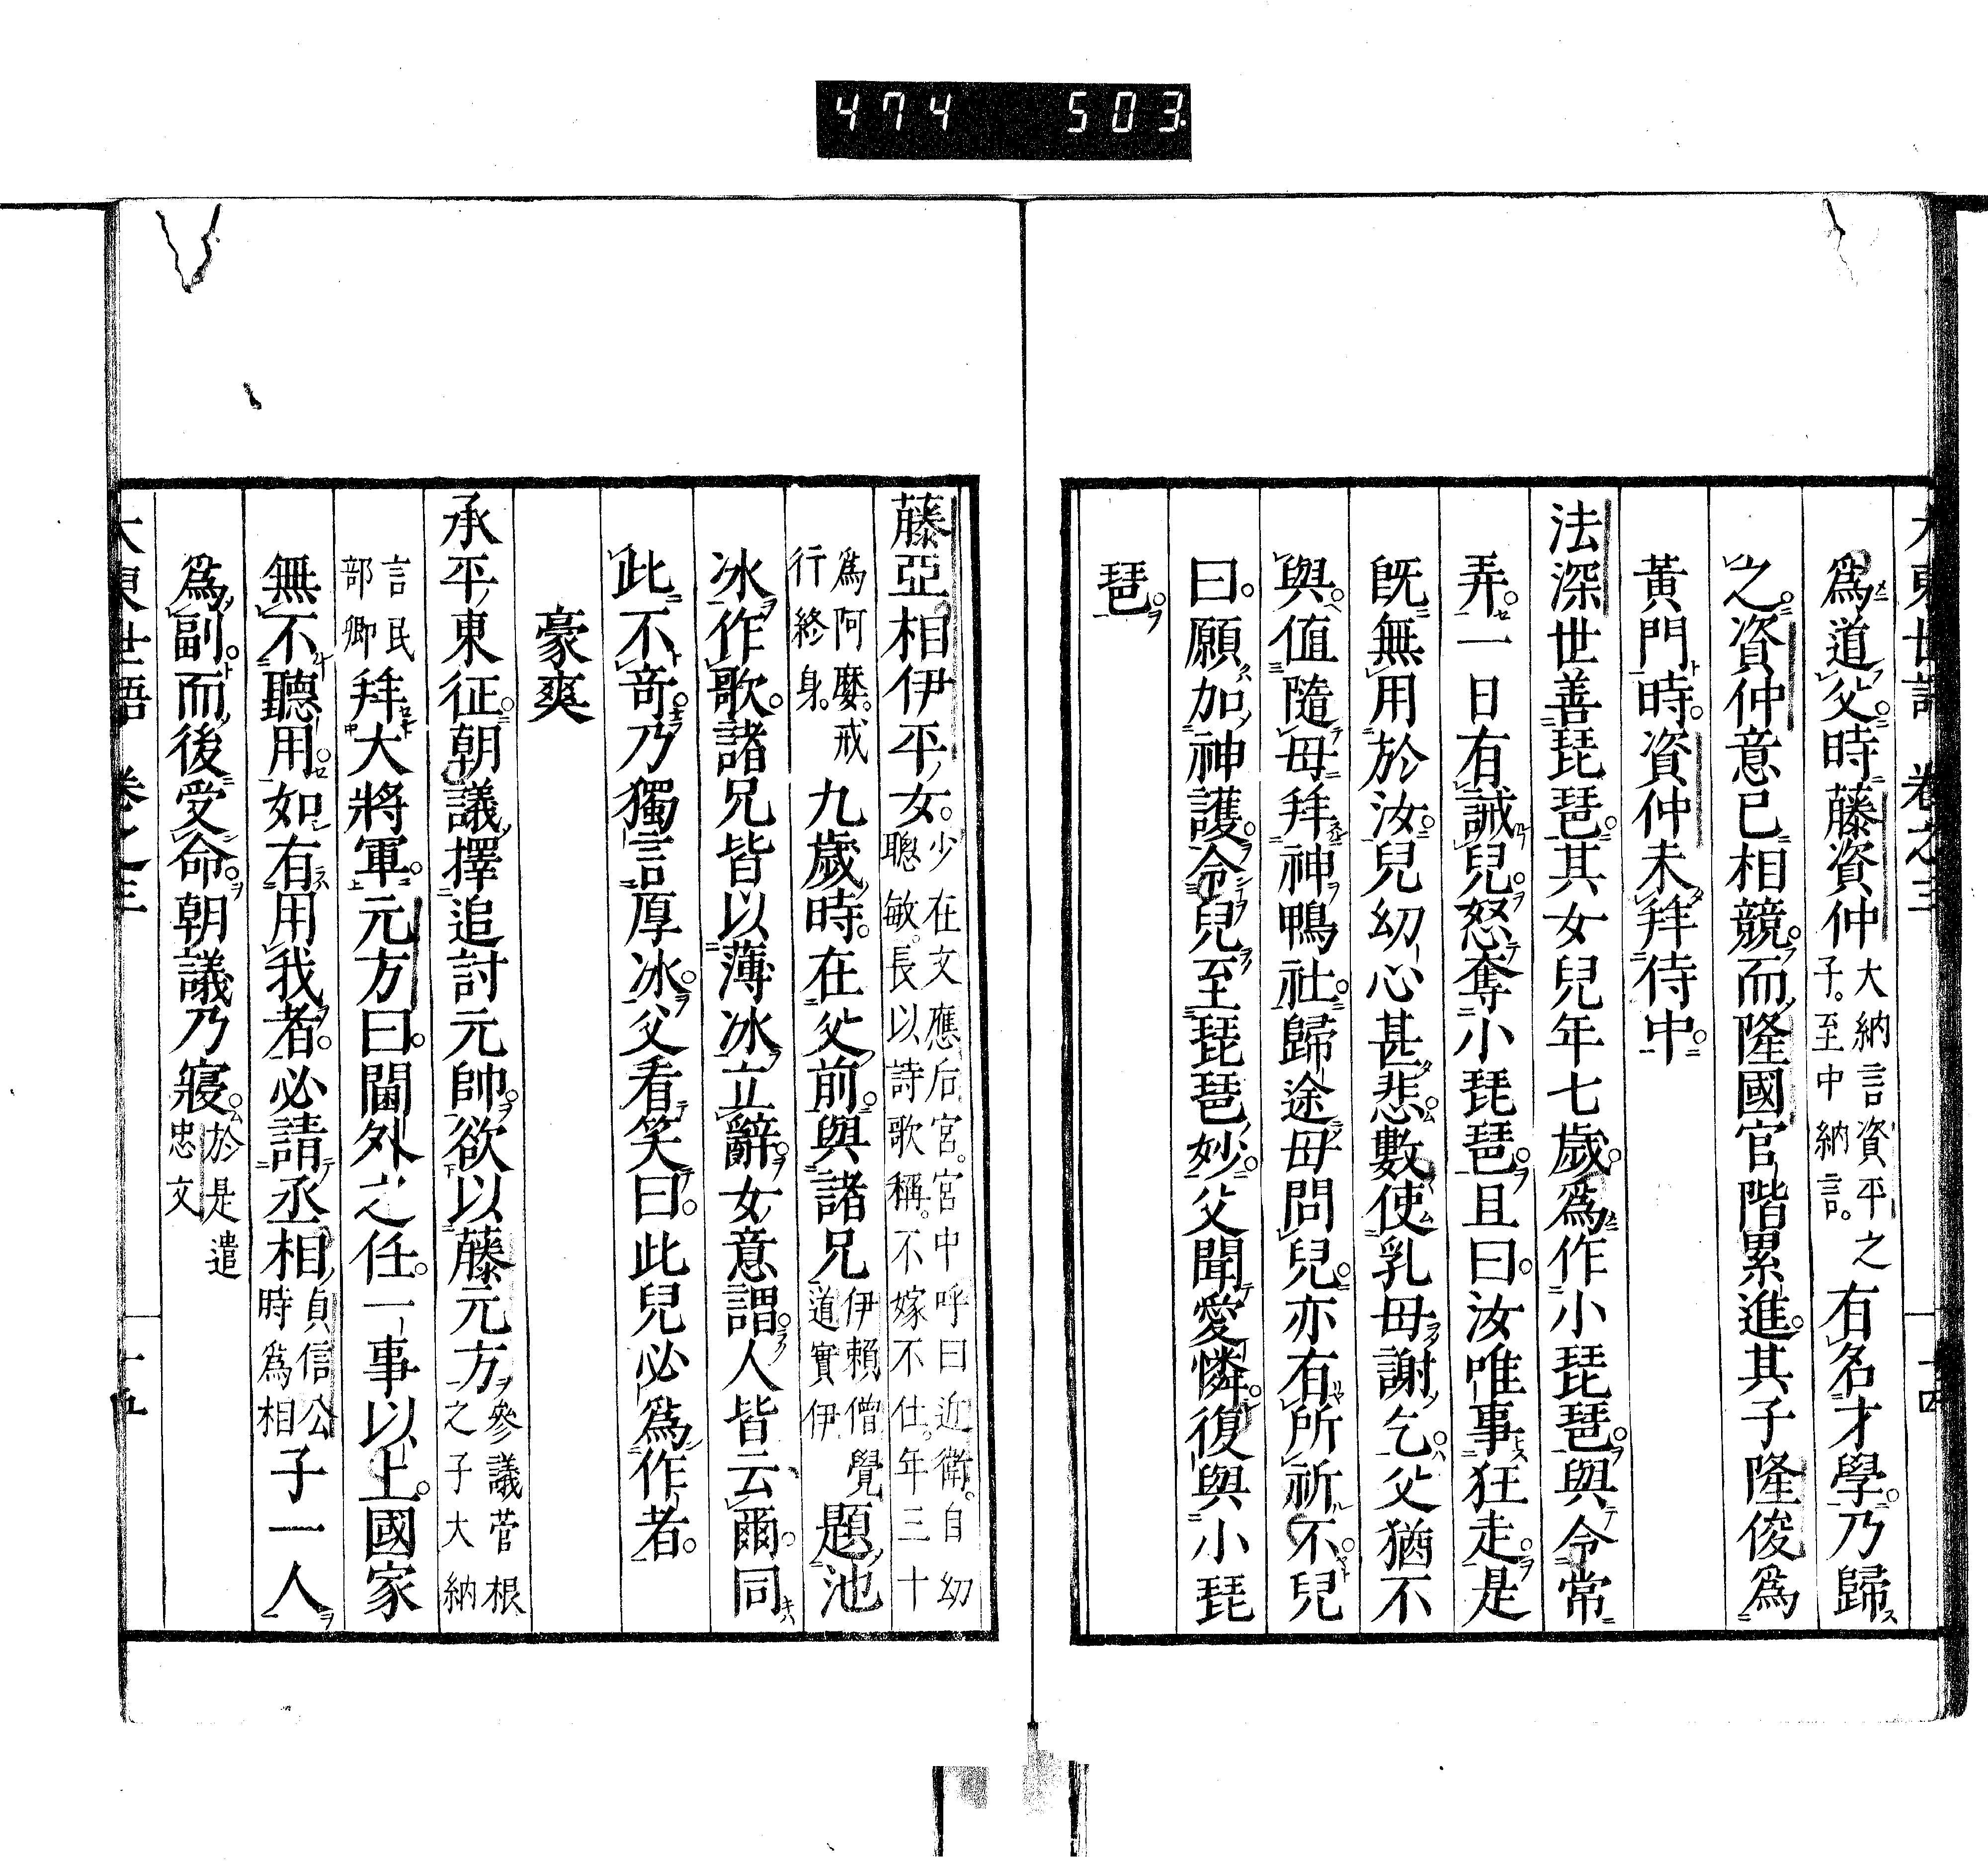 474 503
大東世語 卷之三 十四
爲道父時藤資仲大納言資平之子。至中納言。有名才學。乃歸
之。資仲意已相競。而隆國官階累進。其子隆俊爲
黃門時。資仲未拜侍中。
法深世善琵琶。其女兒年七歲。爲作小琵琶。與令常
弄。一日有誡。兒怒奪小琵琶。且曰。汝唯事狂走。是
既無用於汝。兒幼心甚悲。數使乳母謝乞。父猶不
與。値隨母拜神鴨社。歸途母問兒。亦有所祈不。兒
曰。願加神護。令兒至琵琶妙。父聞愛憐。復與小琵
琶。
藤亞相伊平女。少在文應后宮。宮中呼曰近衛。自幼聰敏。長以詩歌稱。不嫁不仕。年三十
爲阿麼。戒行終身。九歲時。在父前。與諸兄伊賴僧覺道實伊題池
冰作歌。諸兄皆以薄冰立辭。女意謂。人皆云爾。同
此不奇。乃獨言厚冰。父看笑曰。此兒必爲作者。
豪爽
承平東征。朝議擇追討元帥。欲以藤元方參議菅根之子大納
言民部卿拜大將軍。元方曰。閫外之任。一事以上。國家
無不聽用。如有用我者。必請丞相貞信公時爲相子一人
爲副。而後受命。朝議乃寢。於是遣忠文
大東世語 卷之三 十五